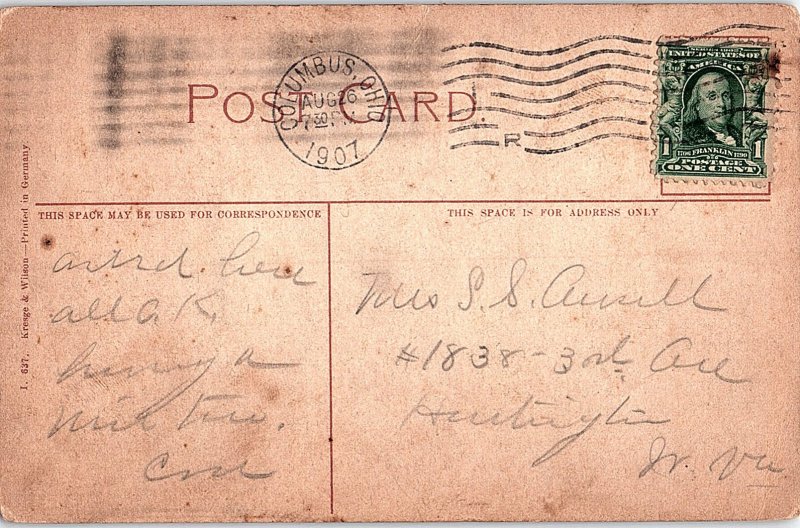 POST CARD
COLUMBUS, OHIO
AUG 26
7 30 P
1907
R
SERIES 1902
UNITED STATES OF
AMERICA
1706 FRANKLIN 1790
1 1
POSTAGE
ONE CENT
THIS SPACE MAY BE USED FOR CORRESPONDENCE
THIS SPACE IS FOR ADDRESS ONLY
I. 637. Kresge & Wilson—Printed in Germany
here
all O.K.
having a
time.
Mrs S. S.
#1838-3rd. Ave
Huntington
W. Va